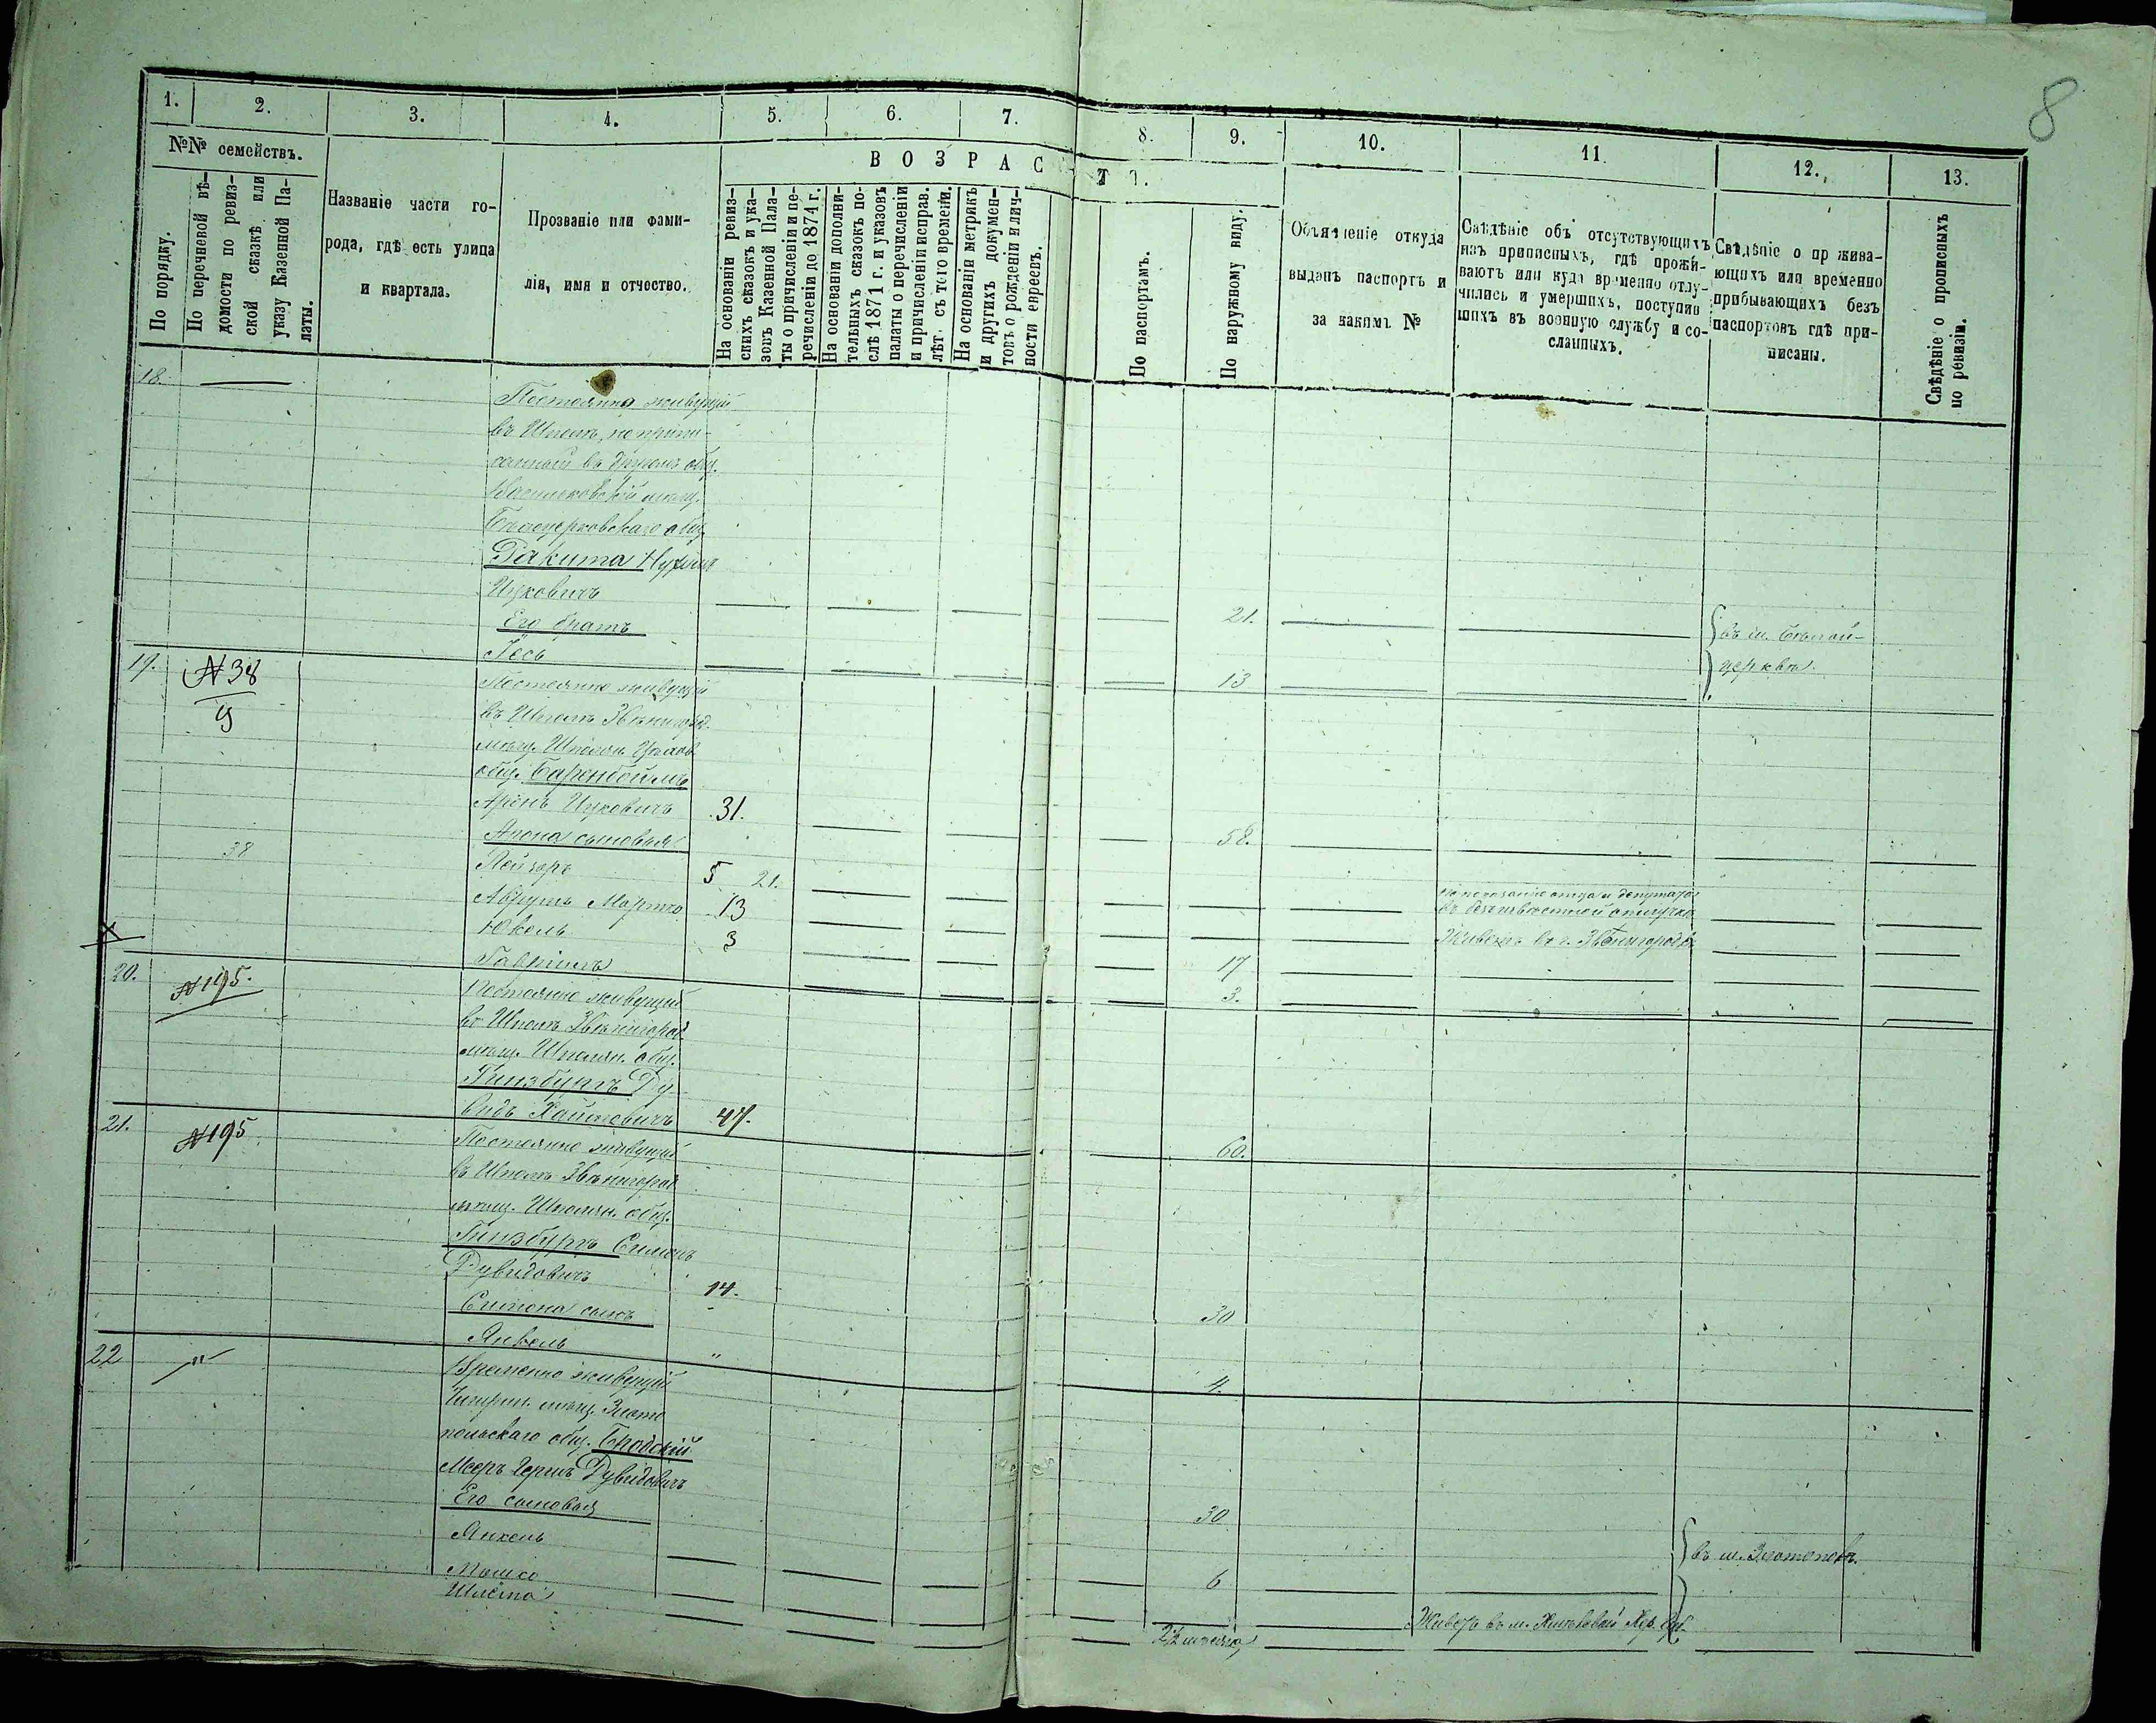 8
1. 2. 3. 4. 5. 6. 7. 8. 9. 10. 11. 12. 13.
№№ семействъ.
По порядку.
По перечневой вѣ-
домости по ревиз-
ской сказкѣ или
указу Казенной Па-
латы.
Названіе части го-
рода, гдѣ есть улица
и квартала.
Прозваніе или фами-
лія, имя и отчество.
ВОЗРАСТ
На основаніи ревиз-
скихъ сказокъ и ука-
зовъ Казенной Пала-
ты о причисленіи и пе-
речисленіи до 1874 г.
На основаніи дополни-
тельныхъ сказокъ по-
слѣ 1871 г. и указовъ
палаты о перечисленіи
и причисленіи исправ.
лѣт. съ того времени.
На основаніи метрикъ
и другихъ докумен-
товъ о рожденіи и лич-
ности евреевъ.
По паспортамъ.
По наружному виду.
Объясненіе откуда
выданъ паспортъ и
за какимъ №
Свѣдѣніе объ отсутствующихъ
изъ приписныхъ, гдѣ прожи-
ваютъ или куда временно отлу-
чились и умершихъ, поступив
шихъ въ военную службу и со-
сланныхъ.
Свѣдѣніе о пр жива-
ющихъ или временно
прибывающихъ безъ
паспортовъ гдѣ при-
писаны.
Свѣдѣніе о прописныхъ
по ревизіи.
18.
Постоянно живущій
въ Шполѣ, не припи-
санный въ другомъ общ.
Васильковскій мѣщ.
Бѣлоцерковскаго общ.
Ракита Нухимъ
Ицковичъ 21. въ м. Бѣлой-
Его братъ
Іось 13 церквѣ.
19. №38
Постоянно живущій
въ Шполѣ Звѣнигород.
мѣщ. Шполян.
общ. Баренбоймъ
Аронъ Ицковичъ 31. 58.
Арона сыновья
38 Лейзоръ 5 21. въ безъизвѣстной отлучкѣ
Аврумъ Мортко 13 Живетъ въ г. Звѣнигородкѣ
Юколь 3 17
Гавріилъ 3.
20. №195.
Постоянно живущій
въ Шполѣ Звѣнигород.
мѣщ. Шполян. общ.
Гинзбургъ Ду-
видъ Хаимовичъ 47. 60.
21. №195
Постоянно живущій
въ Шполѣ Звѣнигород
мѣщ. Шполян. общ.
Гинзбургъ Симонъ
Дувидовичъ 14. 30
Симона сынъ
Янкель " 4.
22 "
Временно живущій
Чигирин. мѣщ. Злато
польскаго общ. Бродскій
Мееръ Гершъ Дувидовичъ 30
Его сыновья въ м. Златополѣ.
Янкель 6
Мошко Живетъ въ м.
Шлёма 2½ мѣсяца